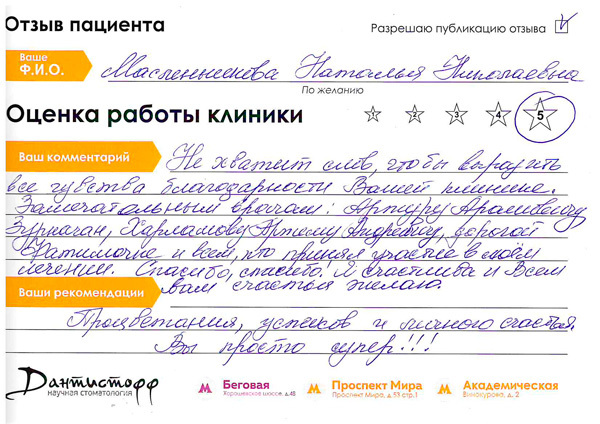 Отзыв пациента
Разрешаю публикацию отзыва
Ваше
Ф.И.О.
Масленникова Наталья Николаевна
По желанию
Оценка работы клиники
1 2 3 4 5
Ваш комментарий
Не хватит слов, чтобы выразить
все чувства благодарности Вашей клинике.
Замечательным врачам: Артуру Арамовичу
Зурначан, Харламову Артему Андреевичу, дорогой
Фатимочке и всем, кто принял участие в моём
лечении. Спасибо, спасибо! Я счастлива и Всем
Ваши рекомендации
вам счастья желаю.
Процветания, успехов и личного счастья.
Вы просто супер!!!
Дантистофф
научная стоматология
Беговая
Хорошевское шоссе, д.48
Проспект Мира
Проспект Мира, д.53 стр.1
Академическая
Винокурова, д. 2